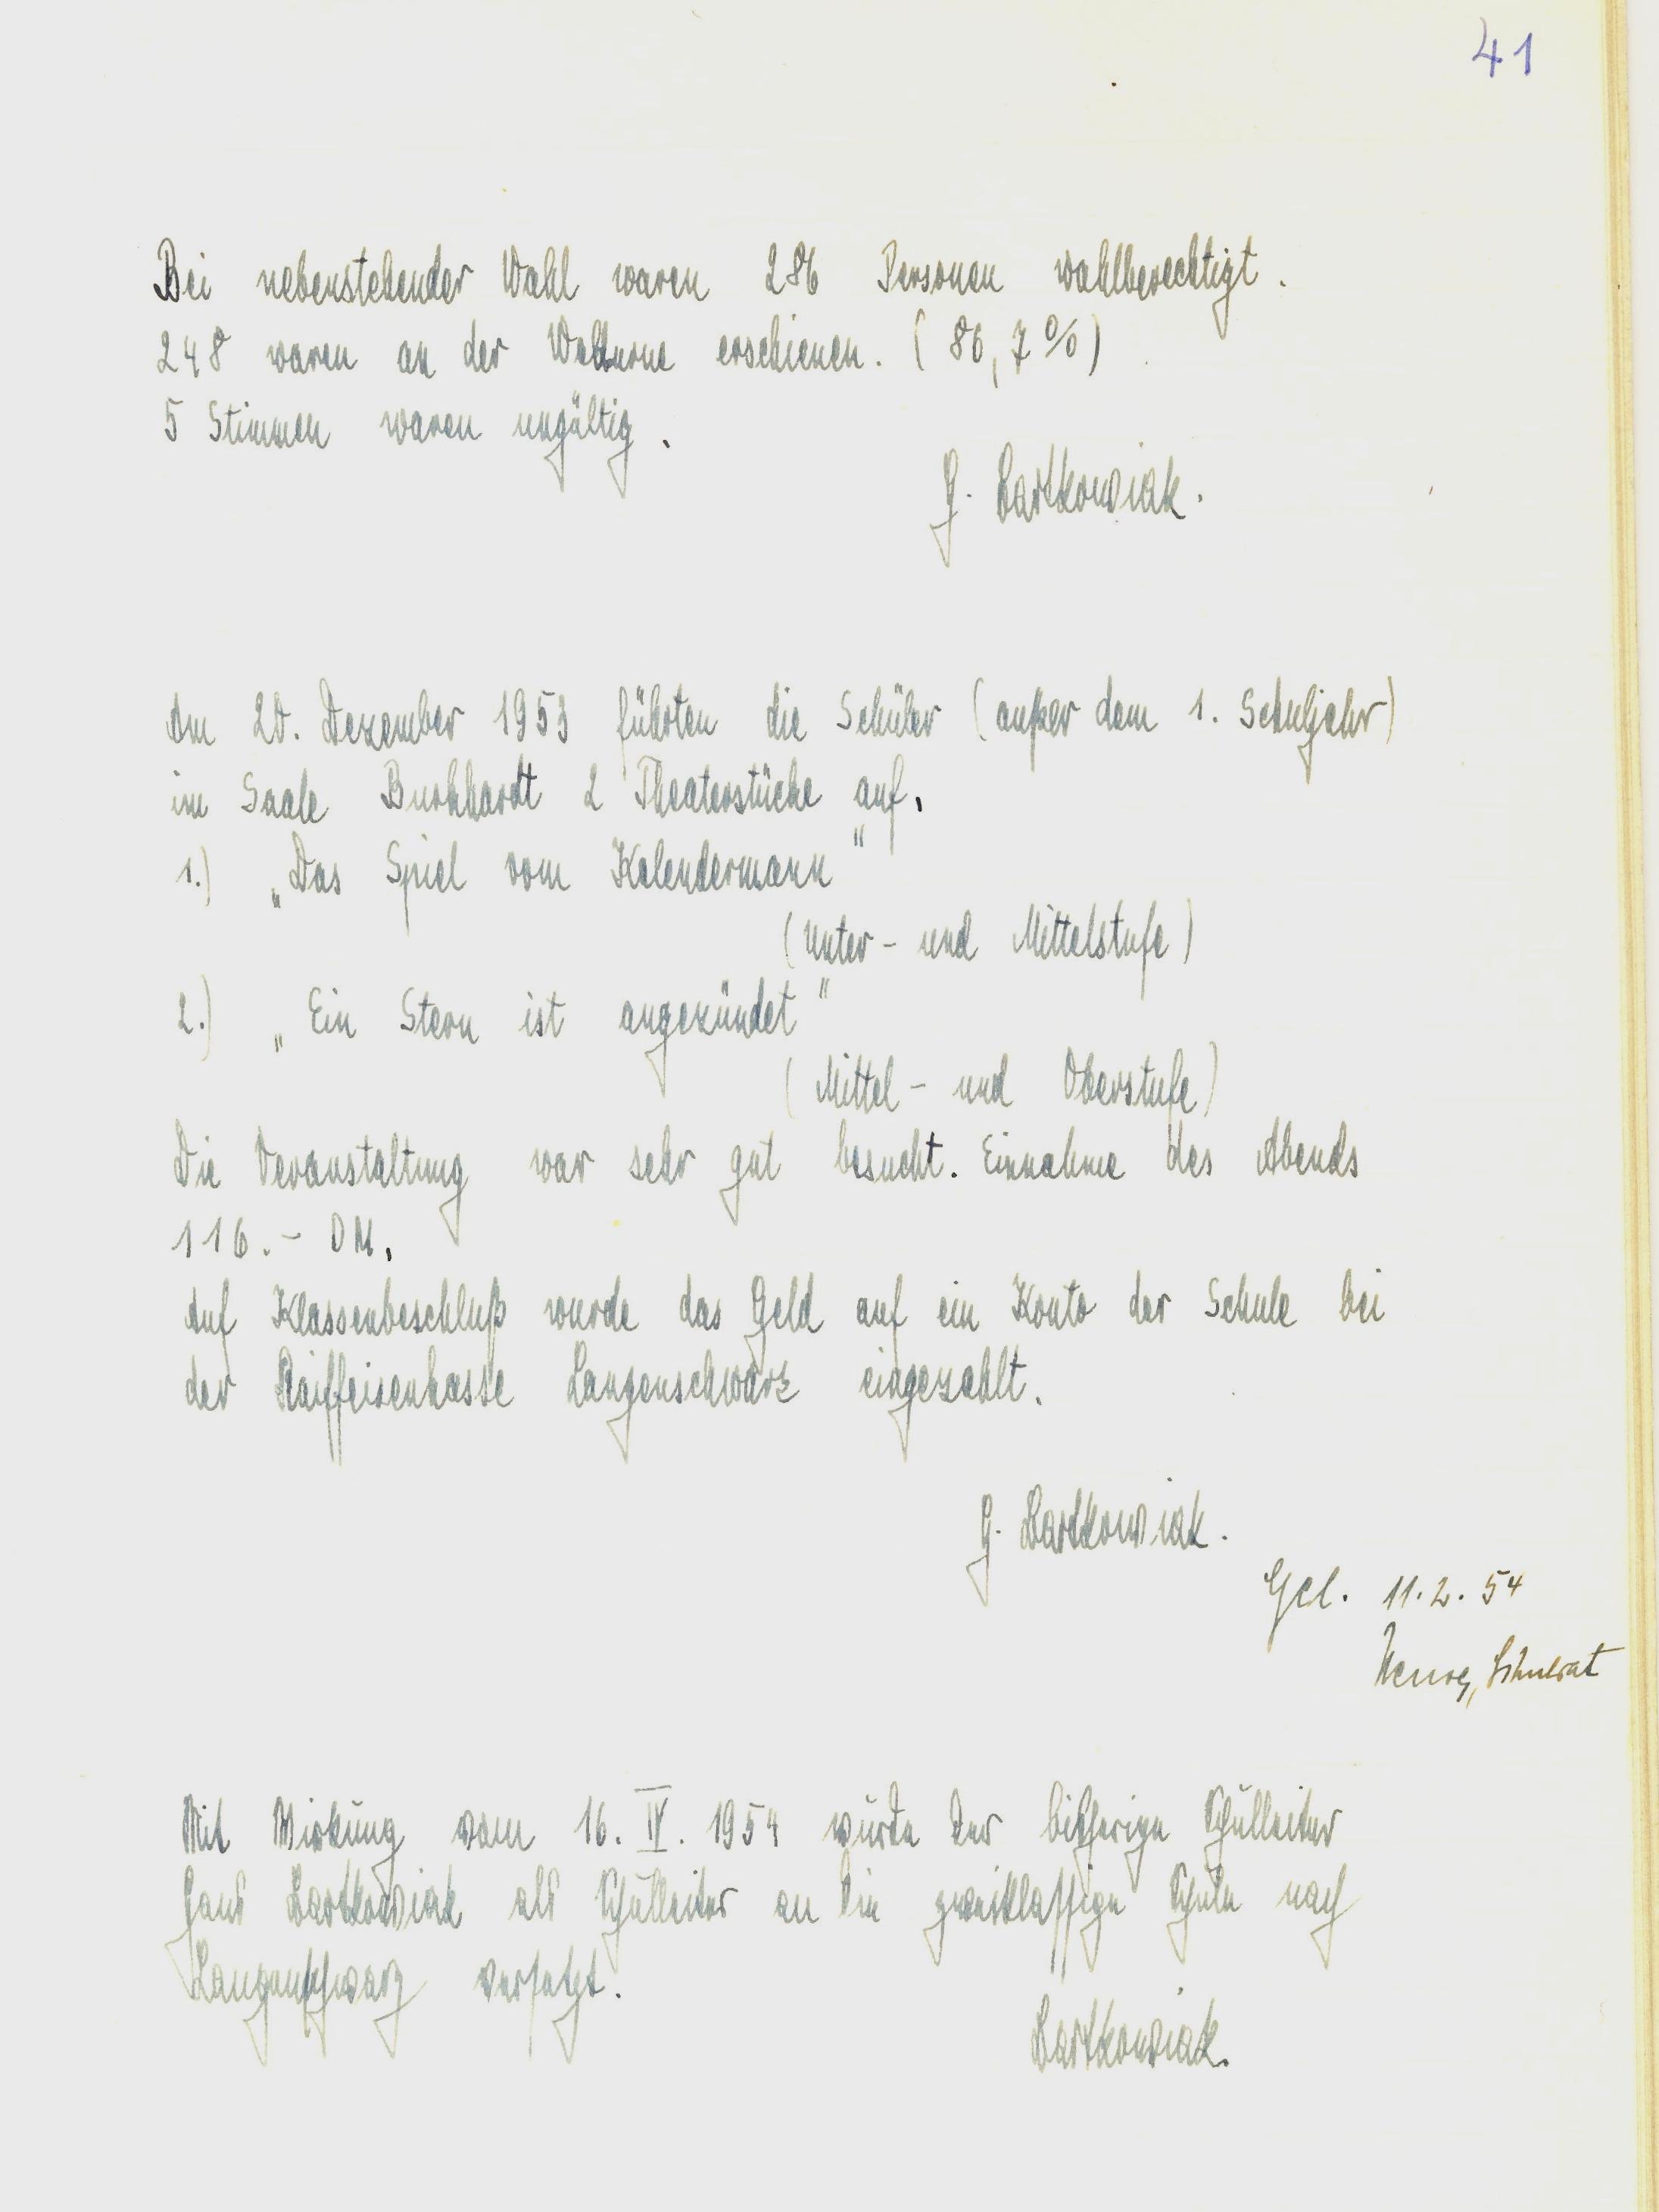 41
Bei nebenstehender Wahl waren 286 Personen wahlberechtigt.
248 waren an der Wahlurne erschienen. (86,7 %)
5 Stimmen waren ungültig.
G. Bartkowiak.
Am 20. Dezember 1953 führten die Schüler (außer dem 1. Schuljahr)
im Saale Burkhardt 2 Theaterstücke auf.
1.) „Das Spiel vom Kalendermann"
(Unter- und Mittelstufe)
2.) „Ein Stern ist angezündet"
(Mittel- und Oberstufe)
Die Veranstaltung war sehr gut besucht. Einnahme des Abends
116.- DM.
Auf Klassenbeschluß wurde das Geld auf ein Konto der Schule bei
der Raiffeisenkasse Langenschwarz eingezahlt.
G. Bartkowiak.
Gel. 11.2.54
Schulrat
Mit Wirkung vom 16. IV. 1954 wurde der bisherige Schulleiter
Hans Bartkowiak als Schulleiter an die zweiklassige Schule nach
Langenschwarz versetzt.
Bartkowiak.